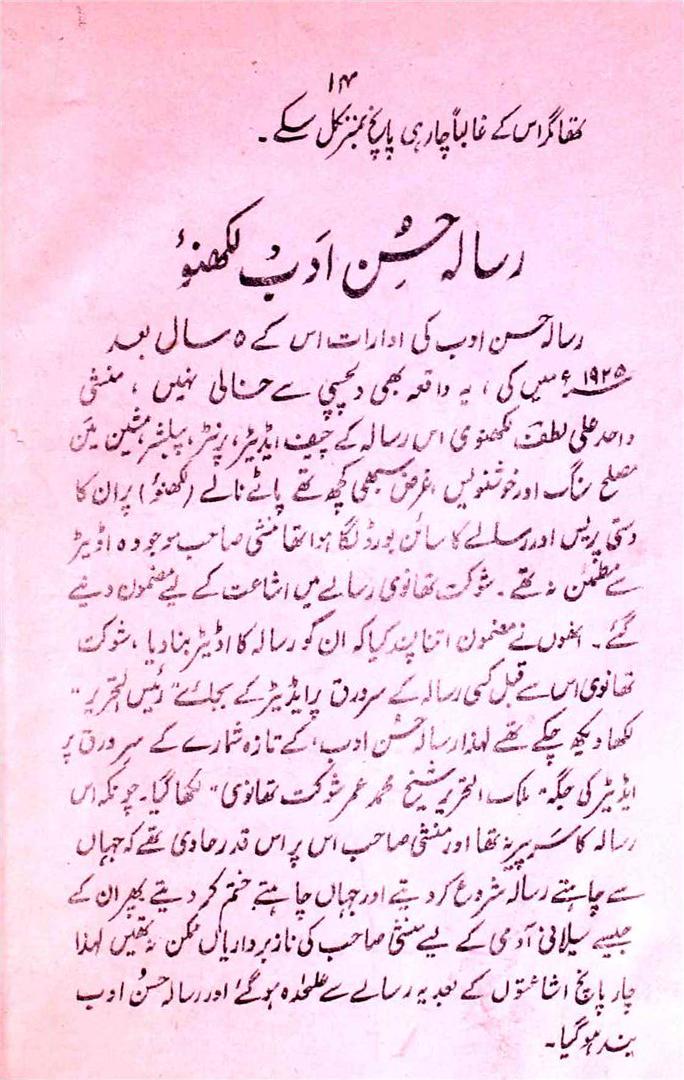 ۱۴
تھا مگر اس کے غالباً چار ہی پانچ نمبر نکل سکے ۔
رسالہ حُسنِ ادَب لکھنوٴ
رسالہ حسن ادب کی ادارات اس کے ۵ سال بعد
۱۹۲۵ء میں کی ، یہ واقعہ بھی دلچسپی سے خالی نہیں ، منشی
واحد علی لطف لکھنوی اس رسالہ کے چیف ایڈیٹر، پرنٹر، پبلشر، مشین مین
مصلح سنگ اور خوشنویس غرض سبھی کچھ تھے پاٹے نالے (لکھنوٴ) پر ان کا
دستی پریس اور رسالے کا سائن بورڈ لگا ہوا تھا منشی صاحب موجودہ اڈیٹر
سے مطمئن نہ تھے ۔ شوکت تھانوی رسالے میں اشاعت کے لیے مضمون دینے
گئے ۔ انھوں نے مضمون اتنا پسند کیا کہ ان کو رسالہ کا اڈیٹر بنا دیا ، شوکت
تھانوی اس سے قبل کسی رسالہ کے سرورق پر ایڈیٹر کے بجائے "رئیس التحریر"
لکھا دیکھ چکے تھے لہٰذا رسالہ حُسن ادب، کے تازہ شمارے کے سرورق پر
ایڈیٹر کی جگہ "ملک التحریر شیخ محمد عمر شوکت تھانوی" لکھا گیا۔ چونکہ اس
رسالہ کا سَر پیر نہ تھا اور منشی صاحب اس پر اس قدر حاوی تھے کہ جہاں
سے چاہتے رسالہ شروع کر دیتے اور جہاں چاہتے ختم کر دیتے پھر ان کے
جیسے سیلانی آدمی کے لیے منشی صاحب کی ناز برداریاں ممکن نہ تھیں لہٰذا
چار پانچ اشاعتوں کے بعد یہ رسالے سے علیٰحدہ ہو گئے اور رسالہ حسنُ ادب
بند ہو گیا ۔